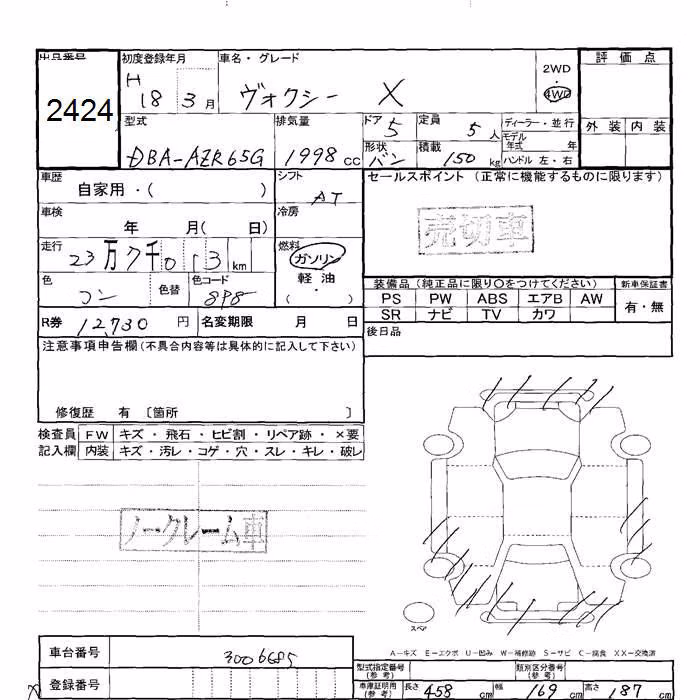 出品番号
2424
初度登録年月
H
18 3 月
車名・グレード
ヴォクシー X
2WD
・
4WD
評価点
外装 内装
型式
DBA-AZR65G
排気量
1998 cc
ドア
5
定員
5 人
形状
バン
積載
150 kg
ディーラー・並行
モデル
年式 年
ハンドル 左・右
車歴
自家用・( )
シフト
AT
セールスポイント (正常に機能するものに限ります)
売切車
車検
年 月( 日)
冷房
走行
23万7千013 km
燃料
ガソリン
軽油
( )
色
コン
色替
色コード
8P8
装備品 (純正品に限り〇をつけてください)
新車保証書
PS PW ABS エアB AW
SR ナビ TV カワ
有・無
R券 12,730 円
名変期限 月 日
後日品
注意事項申告欄(不具合内容等は具体的に記入して下さい)
修復歴 有 〔箇所 〕
検査員
記入欄
FW キズ・飛石・ヒビ割・リペア跡・×要
内装 キズ・汚レ・コゲ・穴・スレ・キレ・破レ
ノークレーム車
スペア
A-キズ E-エクボ U-凹み W-補修跡 S-サビ C-腐食 XX-交換済
車台番号
3006685
登録番号
型式指定番号
(参考)
類別区分番号
(参考)
車庫証明用
(参考)
長さ 458 cm 幅 169 cm 高さ 187 cm